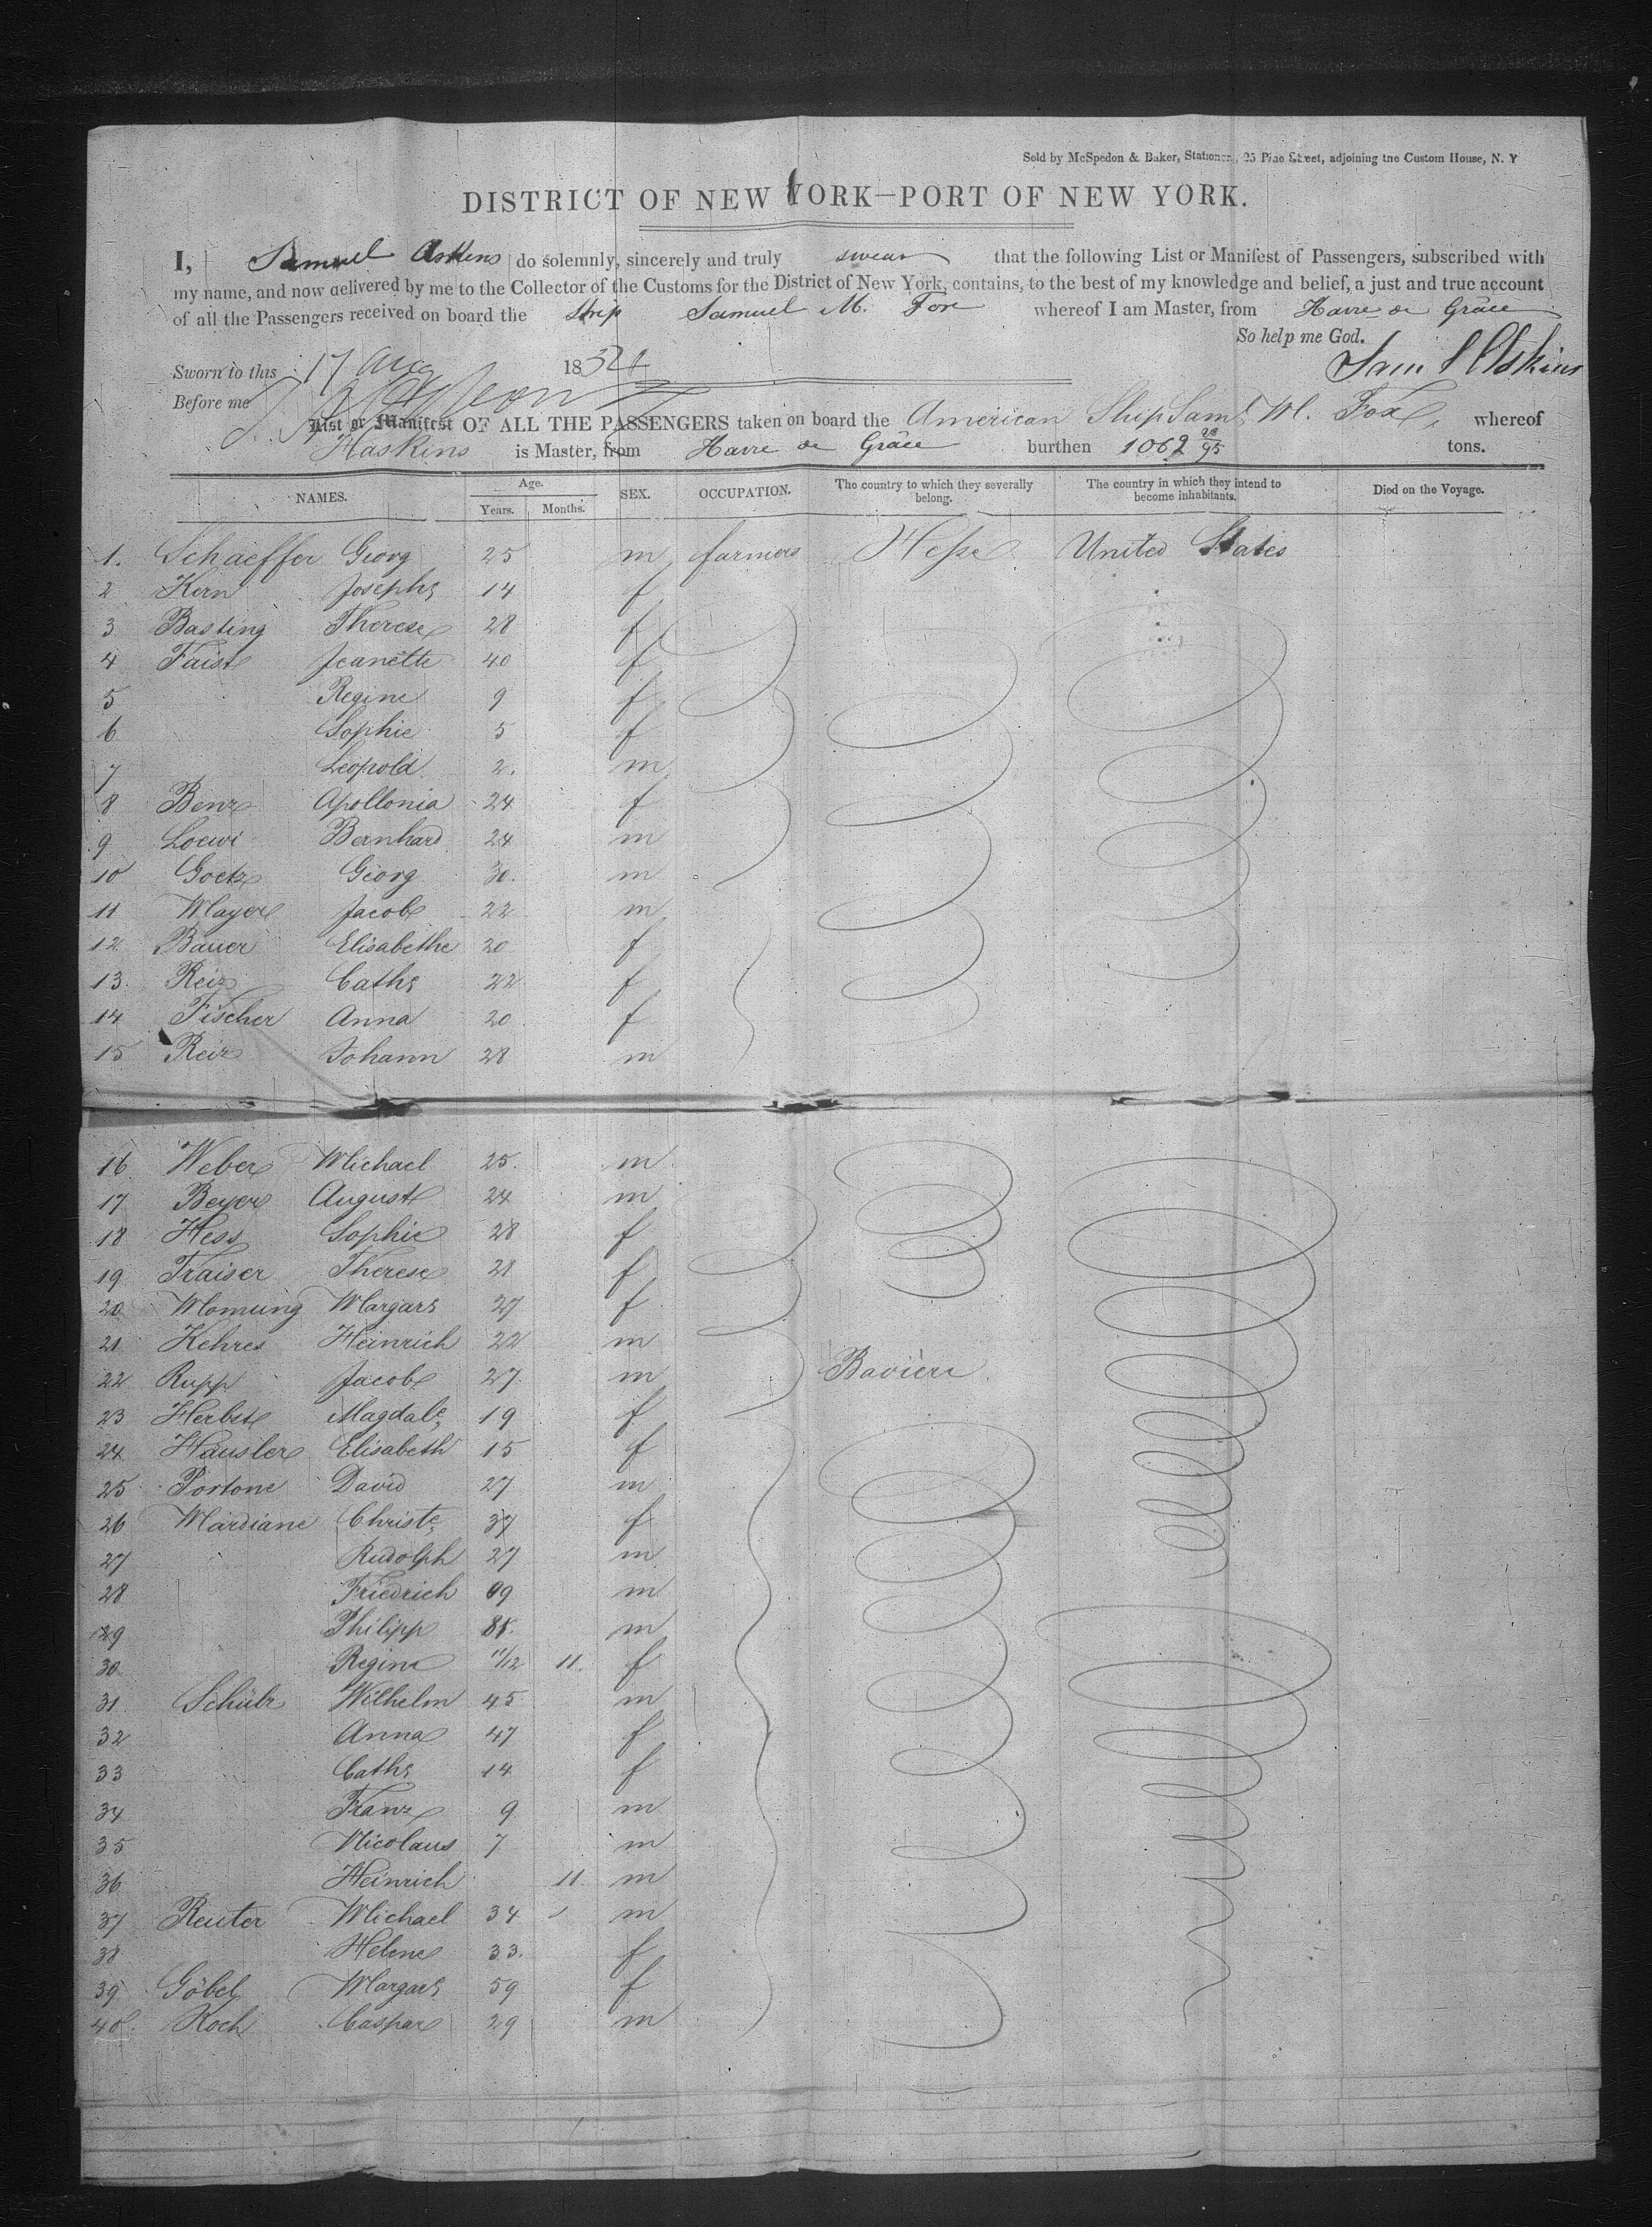 Sold by McSpedon & Baker, Stationers, 25 Pine Street, adjoining the Custom House, N. Y
DISTRICT OF NEW YORK—PORT OF NEW YORK.
I, Samuel Askens do solemnly, sincerely and truly swear that the following List or Manifest of Passengers, subscribed with
my name, and now delivered by me to the Collector of the Customs for the District of New York, contains, to the best of my knowledge and belief, a just and true account
of all the Passengers received on board the Ship Samuel M. Fox whereof I am Master, from Havre de Grâce
So help me God.
Sworn to this 17 Aug 18
Before me
List or Manifest OF ALL THE PASSENGERS taken on board the American Ship Saml. M. Fox, whereof
Haskins is Master, from Havre de Grâce burthen 1062 /95 tons.
NAMES. Age. Years. Months. SEX. OCCUPATION. The country to which they severally belong. The country in which they intend to become inhabitants. Died on the Voyage.
1. Schaeffer Georg 25 m farmers Hesse United States
2 Kern Josephe 14 f
3 Basting Therese 28 f
4 Faist Jeanette 40 f
5 Regine 9 f
6 Sophie 5 f
7 Leopold 2. m
8 Benz Apollonia 24 f
9 Loewi Bernhard 24 m
10 Goetz Georg 30. m
11 Mayer Jacob 22 m
12 Bauer Elisabethe 20 f
13. Reiz Cathe 22 f
14 Fischer Anna 20 f
15 Reiz Johann 28 m
16 Weber Michael 25. m
17 Beyer August 24 m
18 Hess Sophie 28 f
19 Fraiser Therese 28 f
20 Momung Margare 27 f
21 Kehres Heinrich 22 m
22 Rupp Jacob 27 m Baviere
23 Herbst Magdale 19 f
24 Häusler Elisabeth 15 f
25 Portone David 27 m
26 Mardiane Christe 37 f
27 Rudolph 27 m
28 Friedrich 9 m
29 Philipp m
30 Regine 11/12 11. f
31 Schülz Wilhelm 45 m
32 Anna 47 f
33 Cathe 14 f
34 Franz 9 m
35 Nicolaus 7 m
36 Heinrich 11 m
37 Reuter Michael 34 m
38 Helene 33. f
39 Göbel Margare 59 f
40. Koch Caspar 29 m